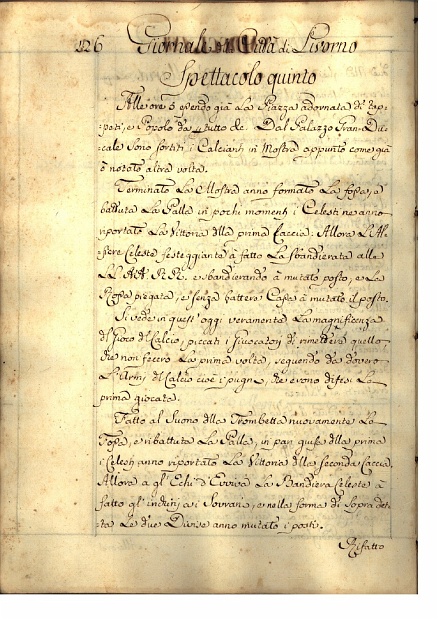 126 Giornale di Città di Livorno
Spettacolo quinto
Alle ore 5 essendo già La Piazza adornata di
e Popolo da tutto che Dal Palazzo Gran=Du=
=cale sono sortiti i Calcianti in Mostra appunto come già
è notato altra volta.
Terminata La Mostra anno formato La e
battuta La Palla in pochi momenti i Celesti ne anno
riportato La Vittoria della prima Caccia: Allora L'Al=
=fiere Celeste festeggiante à fatto La Sbandierata alle
LL. AA. RR. e sbandierando à mutato posto, e La
Rossa piegata, e senza battere Cassa à mutato il posto.
Si vede in quest'oggi veramente La magnificenza
di Gioco di Calcio, piccati i Giuocatori di rimettere quello
che non fecero La prima volta, seguendo da dovero
L'Armi di Calcio cioè i pugni, che erono difesi La
prima giocata.
Fatto al Suono della Trombetta nuovamente La
e ribattuta La Palla, in pari guisa della prima
i Celesti anno riportato La Vittoria della seconda Caccia.
Allora a gl'Echi d'Evviva La Bandiera Celeste à
fatto gl'inchini a i Sovrani, e nella forma di sopra det=
=ta Le due Divise anno mutato i posti.
Rifatto